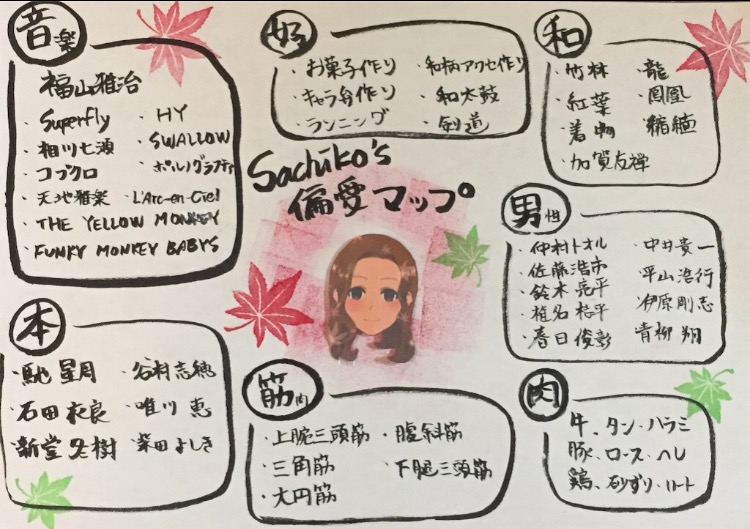 音楽
福山雅治
・Superfly ・HY
・相川七瀬 ・SWALLOW
・コブクロ ・ポルノグラフティ
・天地雅楽 ・L'Arc-en-Ciel
・THE YELLOW MONKEY
・FUNKY MONKEY BABYS
好
・お菓子作り ・和柄アクセ作り
・キャラ弁作り ・和太鼓
・ランニング ・剣道
和
・竹林 ・龍
・紅葉 ・鳳凰
・着物 ・縮緬
・加賀友禅
Sachiko's
偏愛マップ。
男性
・仲村トオル ・中井貴一
・佐藤浩市 ・平山浩行
・鈴木亮平 ・伊原剛志
・椎名桔平 ・青柳翔
・春日俊彰
本
・馳星周 ・谷村志穂
・石田衣良 ・唯川恵
・新堂冬樹 ・柴田よしき
筋肉
・上腕三頭筋 ・腹斜筋
・三角筋 ・下腿三頭筋
・大円筋
肉
牛、タン・ハラミ
豚、ロース・ヘレ
鶏、砂ずり・ハート